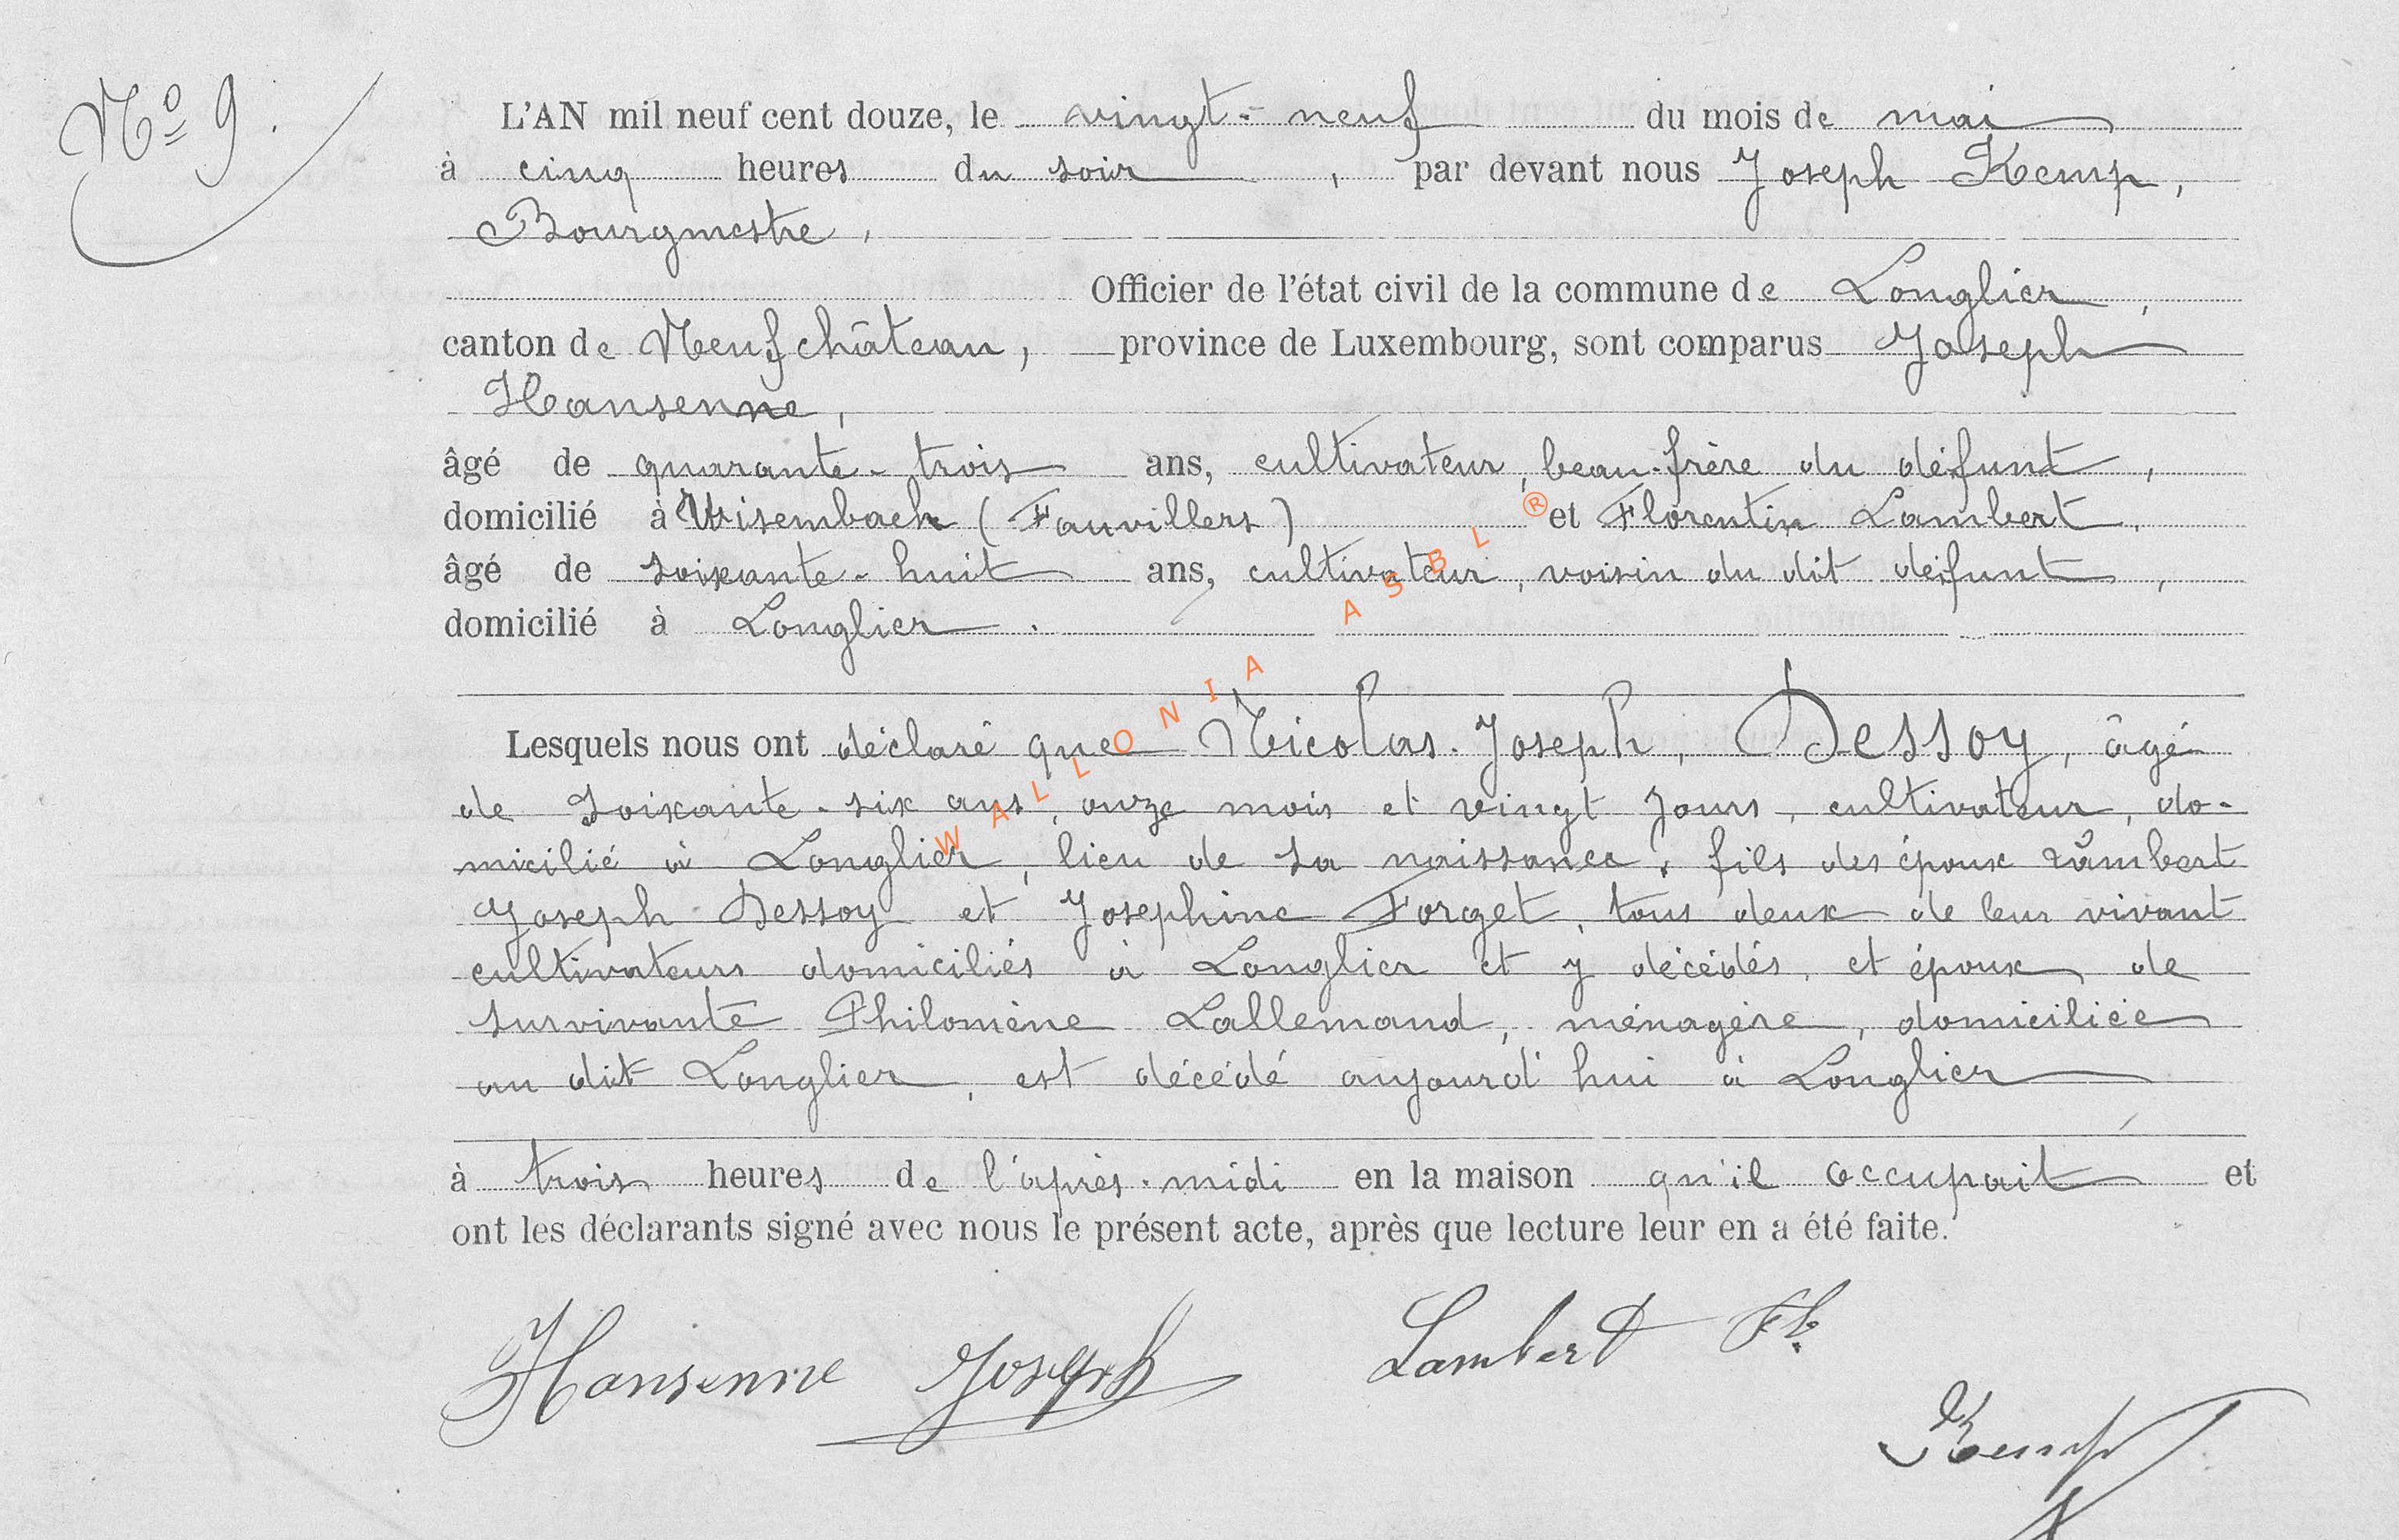 Nº 9.
L'AN mil neuf cent douze, le vingt-neuf du mois de mai
à cinq heures du soir, par devant nous Joseph Kemp,
Bourgmestre,
Officier de l'état civil de la commune de Longlier,
canton de Neufchâteau, province de Luxembourg, sont comparus Joseph
Hansenne,
âgé de quarante-trois ans, cultivateur, beau-frère du défunt,
domicilié à Wisembach (Fauvillers) et Florentin Lambert,
âgé de soixante-huit ans, cultivateur, voisin du dit défunt,
domicilié à Longlier.
Lesquels nous ont déclaré que Nicolas-Joseph, Dessoy, âgé
de soixante-six ans, onze mois et vingt jours, cultivateur, do-
micilié à Longlier, lieu de sa naissance, fils des époux Lambert
Joseph Dessoy et Josephine Forget, tous deux de leur vivant
cultivateurs domiciliés à Longlier et y décédés, et époux de
survivante Philomène Lallemand, ménagère, domiciliée
au dit Longlier, est décédé aujourd'hui à Longlier
à trois heures de l'après-midi en la maison qu'il occupait et
ont les déclarants signé avec nous le présent acte, après que lecture leur en a été faite.
Hansenne Joseph Lambert Ft.
Kemp
WALLONIA ASBL ®